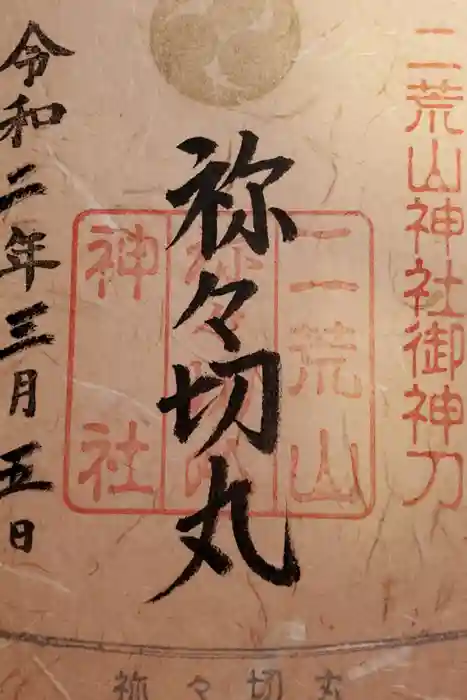 二荒山神社御神刀
二荒山
祢々切丸
神社
祢々切丸
令和二年三月五日
祢々切丸